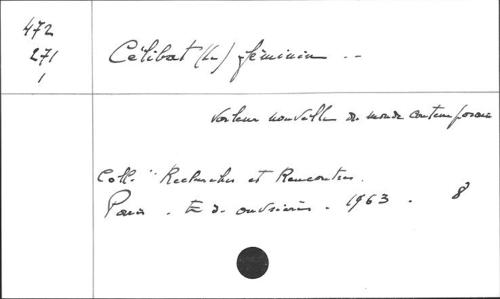 472
271
1
Célibat (Le) féminin --
Valeur nouvelle du monde contemporain
Coll. "Recherches et Rencontres.
Paris. Ed. ouvrières. 1963. 8